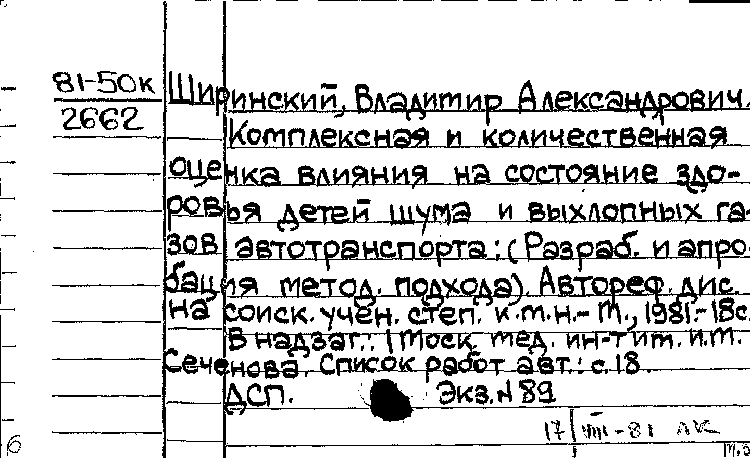 81-50к Ширинский, Владимир Александрович.
2662 Комплексная и количественная
оценка влияния на состояние здо-
ровья детей шума и выхлопных га-
зов автотранспорта: (Разраб. и апро-
бация метод. подхода). Автореф. дис.
на соиск. учен. степ. к.м.н.- М., 1981.- 18с.
В надзаг.: 1 Моск. мед. ин-т им. И.М.
Сеченова. Список работ авт.: с.18.
ДСП. Экз.N 89
17/VIII-81
6